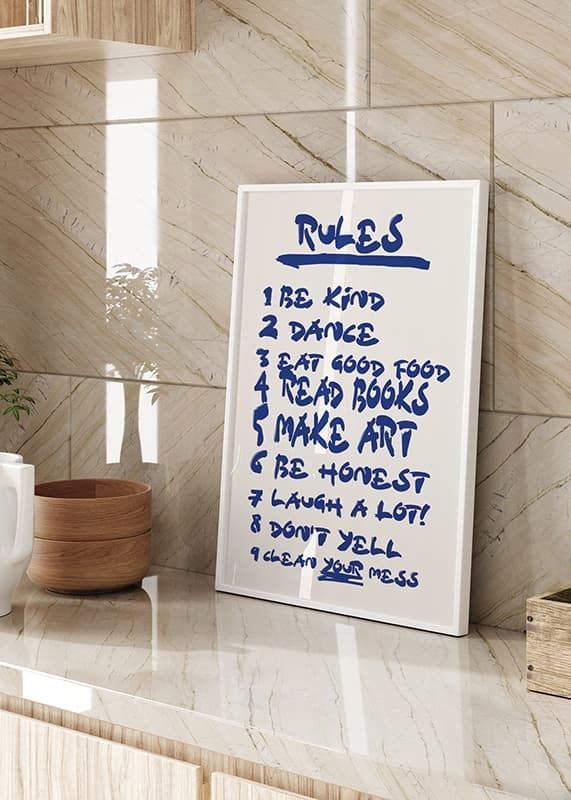 RULES
1 BE KIND
2 DANCE
3 EAT GOOD FOOD
4 READ BOOKS
5 MAKE ART
6 BE HONEST
7 LAUGH A LOT!
8 DON'T YELL
9 CLEAN YOUR MESS